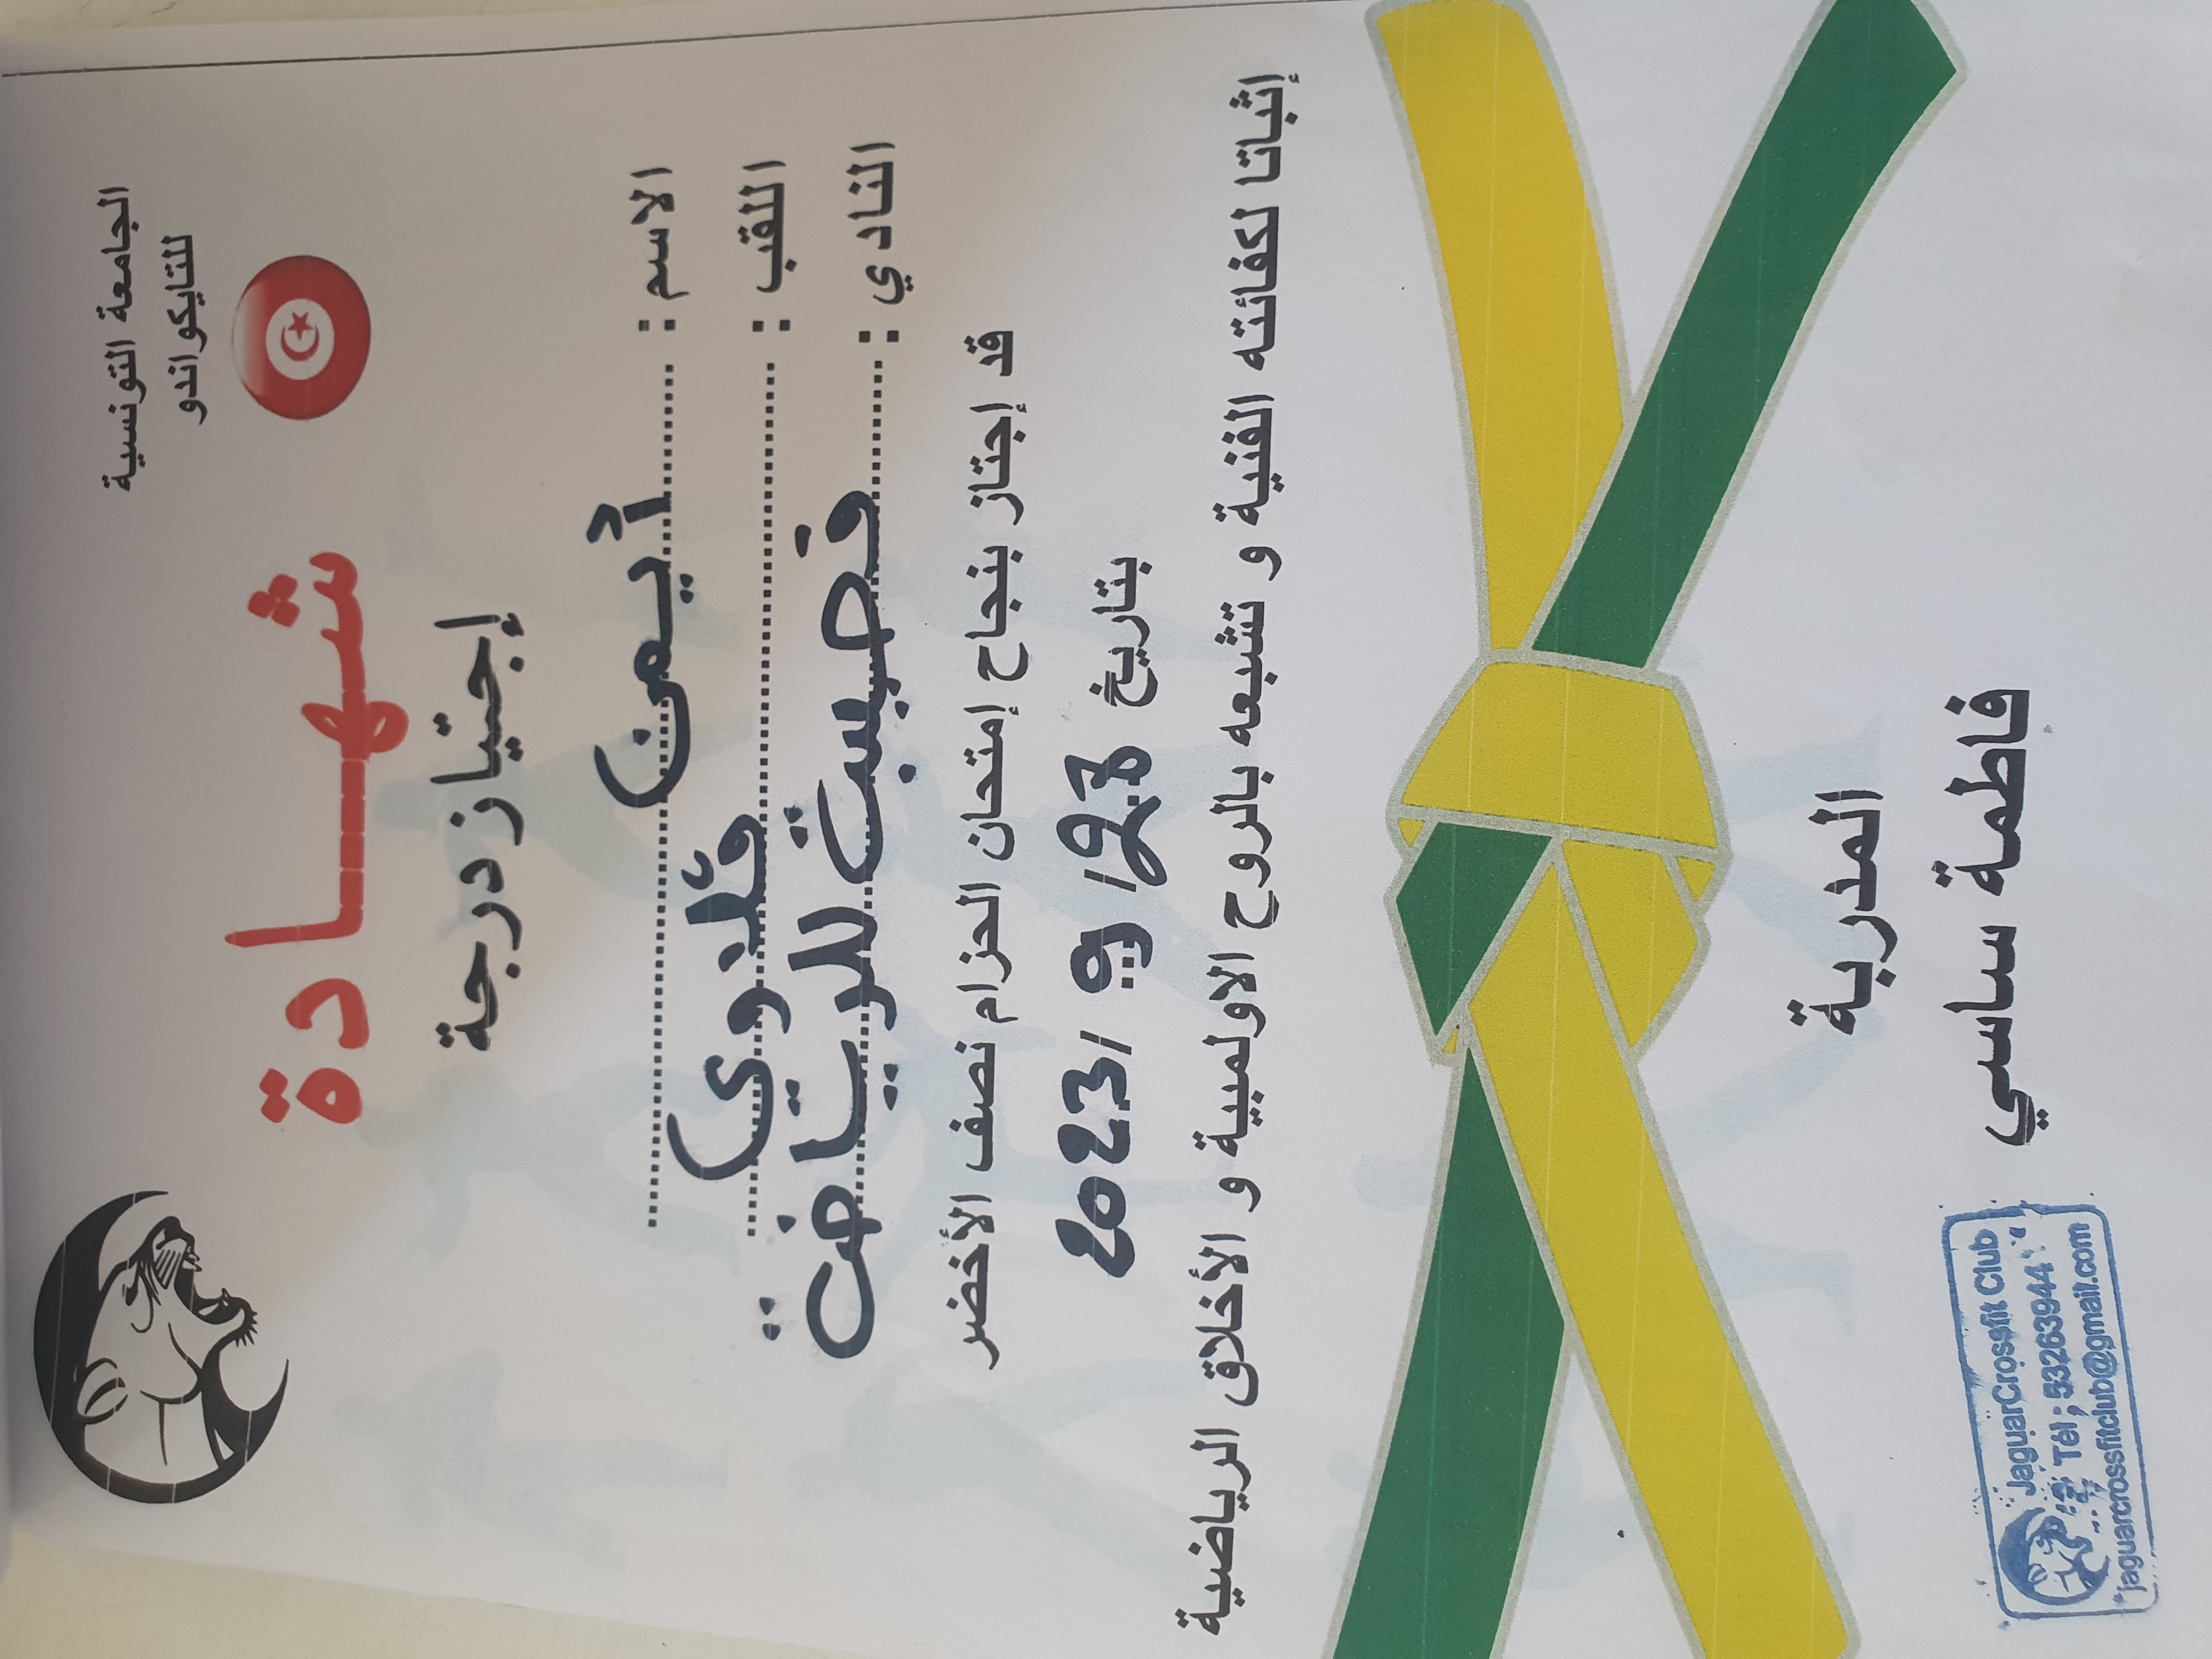 الجامعة التونسية
للتايكواندو
شهـــادة
إجتياز درجة
الاسم : أيمن
اللقب :
النادي : قصبت للرياضة
قد إجتاز بنجاح إمتحان الحزام نصف الأخضر
بتاريخ 23 / 9 / 2023
إثباتا لكفائته الفنية و تشبعه بالروح الاولمبية و الأخلاق الرياضية
المدربة
فاطمة ساسي
JaguarCrossfit Club
Tél : 53263944
jaguarcrossfitclub@gmail.com